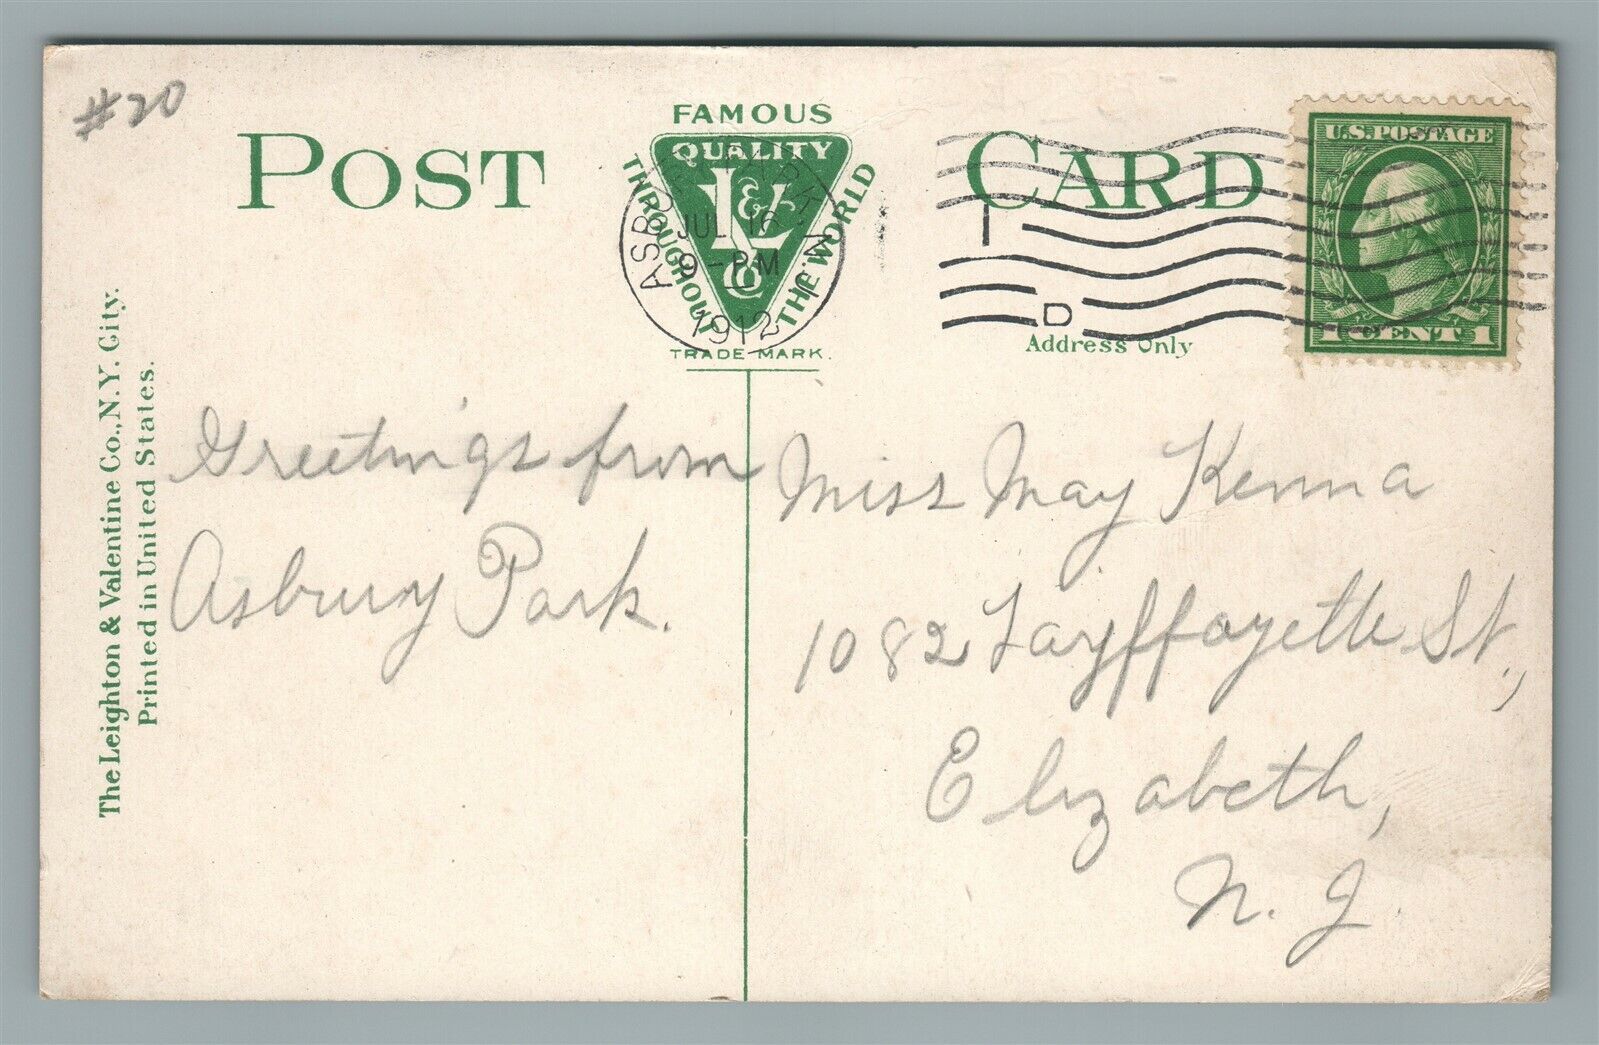 #20
POST CARD
FAMOUS
QUALITY
THROUGHOUT THE WORLD
L&V
Co
TRADE MARK.
ASBURY PARK N.J.
JUL 16
9-PM
1912
I
D
U.S. POSTAGE
1 CENT 1
Address Only
The Leighton & Valentine Co., N.Y. City.
Printed in United States.
Greetings from
Asbury Park.
Miss May Kenna
1082 Layffayette St.,
Elizabeth,
N. J.